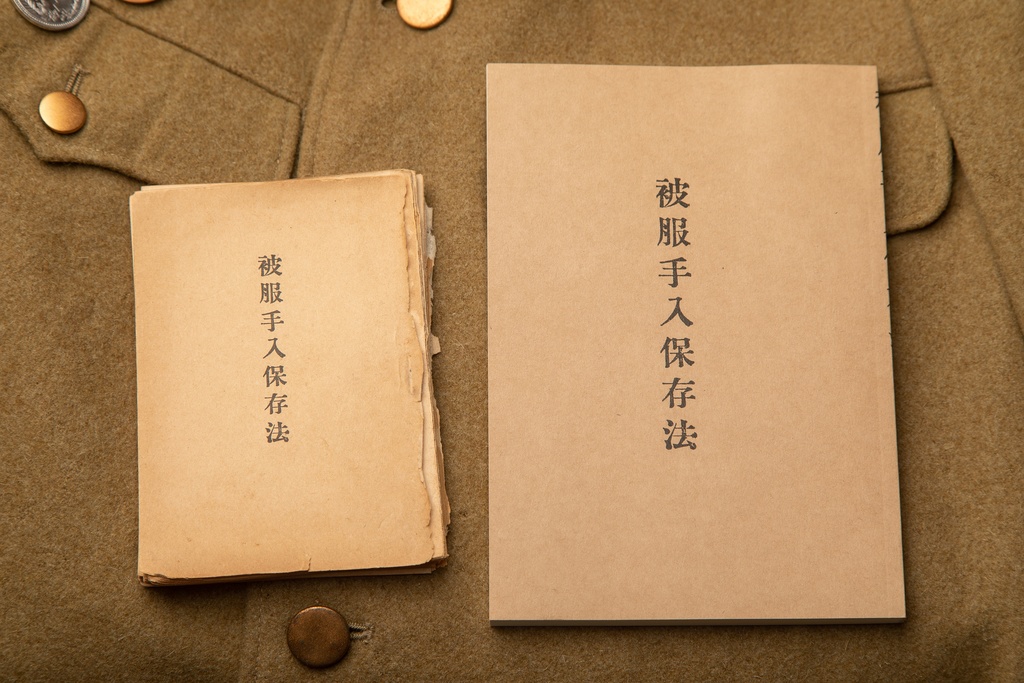 被服手入保存法
被服手入保存法